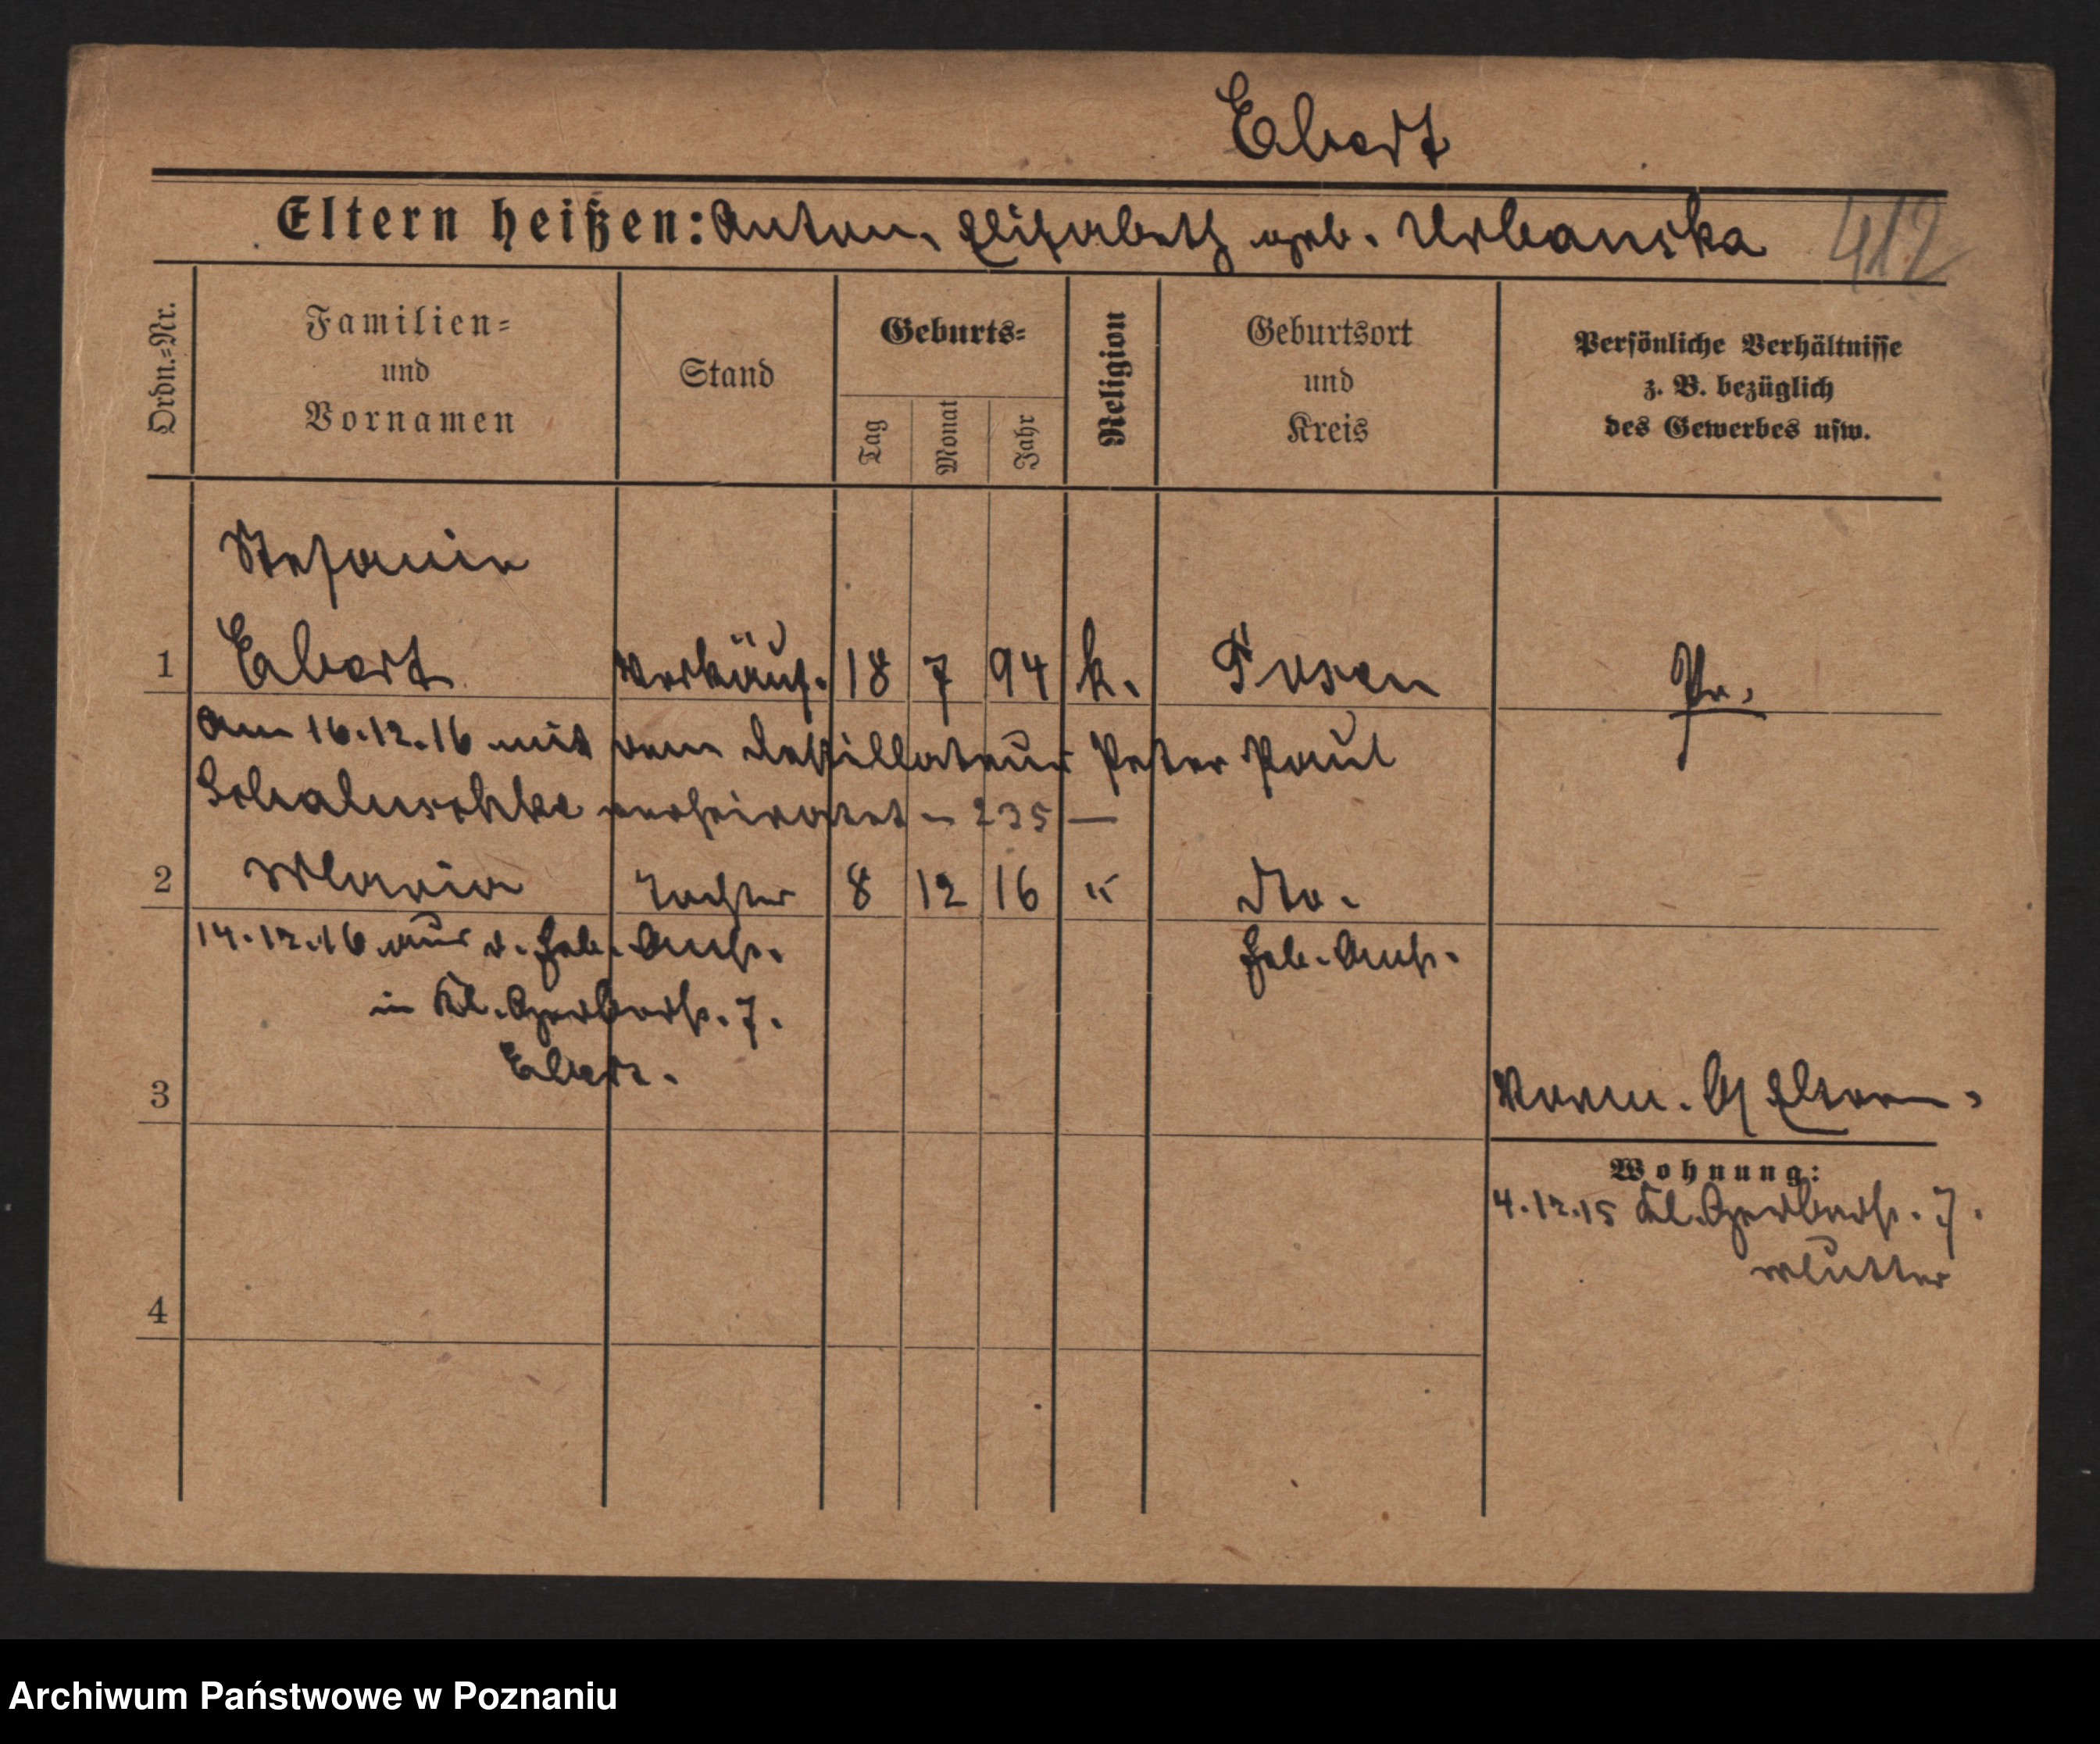 Ebert
Eltern heißen: Anton, Elisabeth geb. Urbanska 412
Ordn.=Nr.
Familien=
und
Vornamen
Stand
Geburts=
Tag
Monat
Jahr
Religion
Geburtsort
und
Kreis
Persönliche Verhältnisse
z. B. bezüglich
des Gewerbes usw.
Stefanie
1 Ebert Verkäuf. 18 7 94 k. Posen Pr.
Am 16.12.16 mit dem Destillateur Peter Paul
verheiratet - 235 -
2 Maria Tochter 8 12 16 " dto.
14.12.16 aus d. Heb. Anst. Heb. Anst.
in Kl. Gerberst. 7.
Ebert.
3 Eltern
Wohnung:
4.12.15 Kl. Gerberst. 7.
Mutter
4
Archiwum Państwowe w Poznaniu